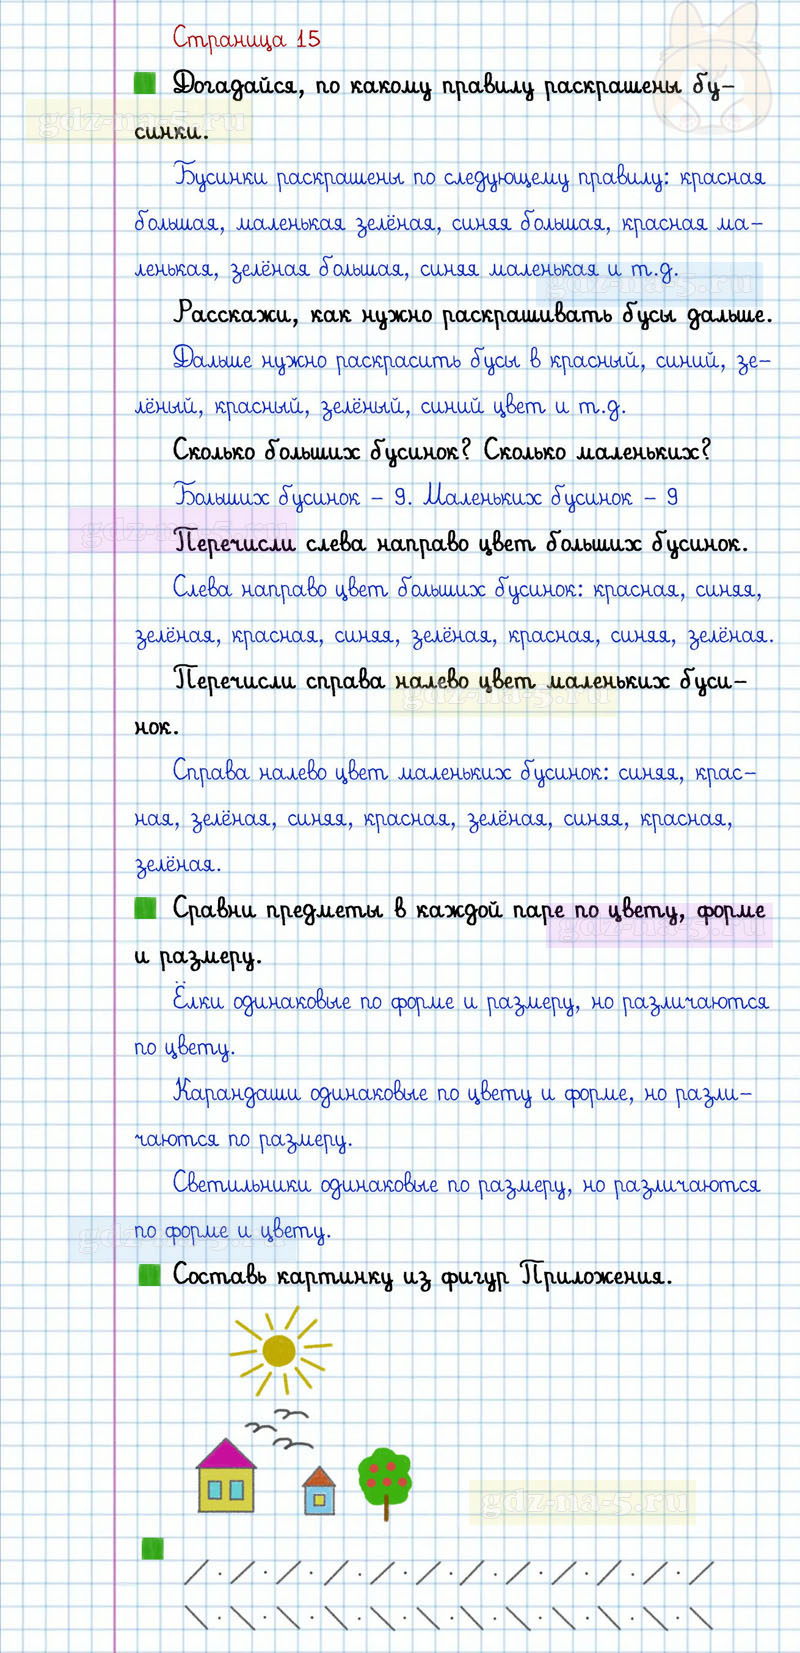 Страница 15
Догадайся, по какому правилу раскрашены бу-
gdz-na-5.ru
синки.
Бусинки раскрашены по следующему правилу: красная
большая, маленькая зелёная, синяя большая, красная ма-
ленькая, зелёная большая, синяя маленькая и т.д.
gdz-na-5.ru
Расскажи, как нужно раскрашивать бусы дальше.
Дальше нужно раскрасить бусы в красный, синий, зе-
лёный, красный, зелёный, синий цвет и т.д.
Сколько больших бусинок? Сколько маленьких?
Больших бусинок – 9. Маленьких бусинок – 9
gdz-na-5.ru
Перечисли слева направо цвет больших бусинок.
Слева направо цвет больших бусинок: красная, синяя,
зелёная, красная, синяя, зелёная, красная, синяя, зелёная.
Перечисли справа налево цвет маленьких буси-
gdz-na-5.ru
нок.
Справа налево цвет маленьких бусинок: синяя, крас-
ная, зелёная, синяя, красная, зелёная, синяя, красная,
зелёная.
Сравни предметы в каждой паре по цвету, форме
gdz-na-5.ru
и размеру.
Ёлки одинаковые по форме и размеру, но различаются
по цвету.
Карандаши одинаковые по цвету и форме, но разли-
чаются по размеру.
Светильники одинаковые по размеру, но различаются
по форме и цвету.
gdz-na-5.ru
Составь картинку из фигур Приложения.
gdz-na-5.ru